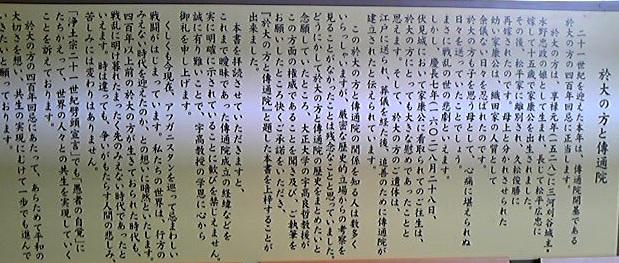 於大の方と傳通院
二十一世紀を迎えた本年は、傳通院開基である
於大の方の四百年回忌に正当します。
於大の方は、享禄元年(一五二八)に三河刈谷城主・
水野忠政の娘として生まれ、長じて松平広忠に
嫁して十五歳で家康公を出生されました。
その後、松平家を離別し、久松俊勝に
再嫁されたのです。母上と
幼い家康公は、織田家の人質として
余儀ない日々を忍ばれたのです。
於大の方も子を思う母として、心痛に堪えられぬ
日々を送っていたことでしょう。
まさに戦乱の世の悲劇といえます。
於大の方は慶長七年(一六〇二)八月二十八日、
伏見城にて家康公に看取られてご往生は、
於大の方にとっても大きな慰めであったことと
思えます。そして、於大の方のご遺体は、
江戸に送られ、葬儀を経た後、追善のために傳通院が
建立されたと伝えられています。
この於大の方と傳通院の関係を知る人は数多く
いらっしゃいますが、厳密な歴史的立場からの考察を
見ることがなかったことは残念なことと思っていました。
どうにかして於大の方と傳通院の歴史をまとめたいと
念願していたところ、大正大学の宇高良哲教授が
この方面の権威であることを聞き及び、ご執筆を
お願いしましたところご承諾をいただき、
『於大の方と傳通院』と題した本書を上梓することが
出来ました。
本書を拝読させていただきますと、
これまで曖昧であった傳通院成立の経緯などを
実に明確にされていることに歓びを禁じえません。
誠に有り難いことで、宇高教授の学恩に心から
御礼を申し上げます。
くしくも現在、アフガニスタンを巡って忌まわしい
戦闘がはじまっています。私たちの世界は、行方の
みえない時代を迎えたのか、との想いに暗然といたします。
四百年以上前の於大の方が生きておられた時代も、
戦乱に明け暮れた、まったく先のみえない時代であったと
いえます。時は違っても、争いがもたらす人間の悲しみ、
苦しみには変わりはありません。
「浄土宗二十一世紀劈頭宣言」でも、「愚者の自覚」に
たちかえって、世界の人々との共生を実現していく
ことを訴えております。
於大の方の四百年回忌にあたって、あらためて平和の
大切さを想い、共生の実現にむけて一歩でも進んで
いきたいと願っております。